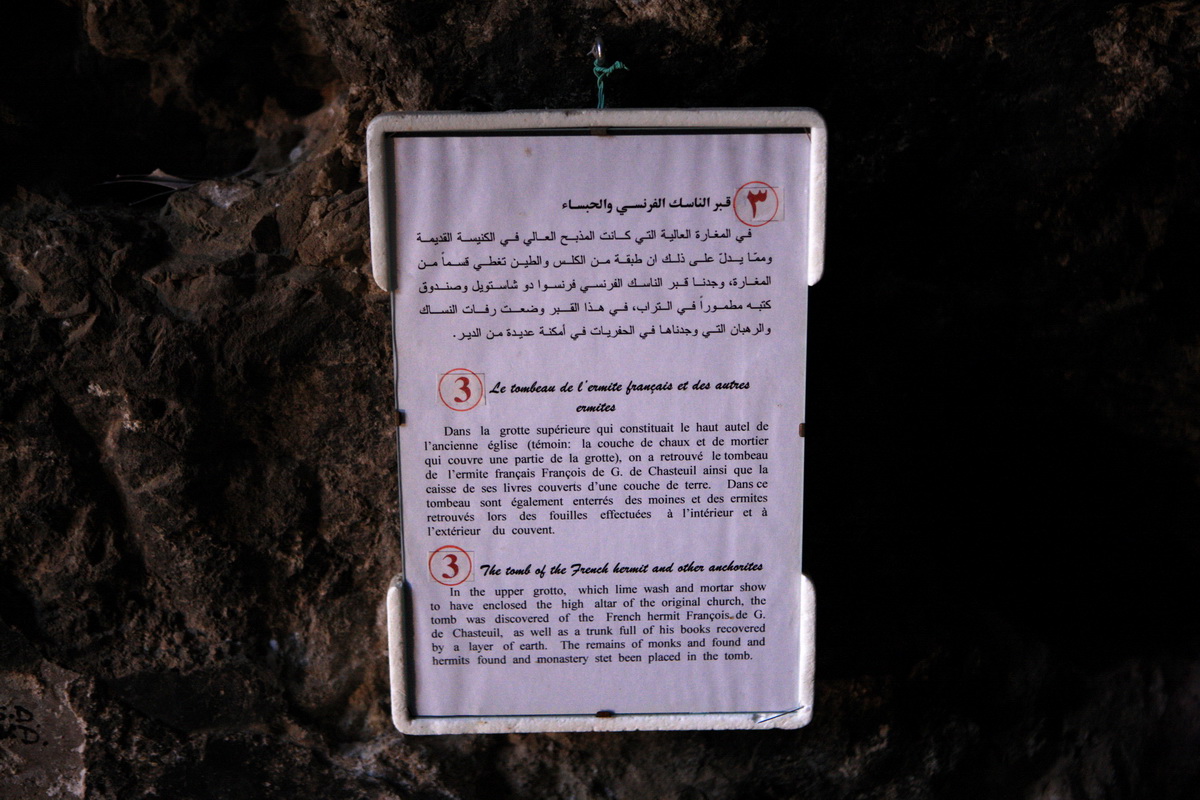 ٣ قبر الناسك الفرنسي والحبساء
في المغارة العالية التي كانت المذبح العالي في الكنيسة القديمة
وممّا يدلّ على ذلك ان طبقة من الكلس والطين تغطي قسماً من
المغارة، وجدنا قبر الناسك الفرنسي فرنسوا دو شاستويل وصندوق
كتبه مطموراً في التراب، في هذا القبر وضعت رفات النساك
والرهبان التي وجدناها في الحفريات في أمكنة عديدة من الدير.
3 Le tombeau de l'ermite français et des autres
ermites
Dans la grotte supérieure qui constituait le haut autel de
l'ancienne église (témoin: la couche de chaux et de mortier
qui couvre une partie de la grotte), on a retrouvé le tombeau
de l'ermite français François de G. de Chasteuil ainsi que la
caisse de ses livres couverts d'une couche de terre. Dans ce
tombeau sont également enterrés des moines et des ermites
retrouvés lors des fouilles effectuées à l'intérieur et à
l'extérieur du couvent.
3 The tomb of the French hermit and other anchorites
In the upper grotto, which lime wash and mortar show
to have enclosed the high altar of the original church, the
tomb was discovered of the French hermit François de G.
de Chasteuil, as well as a trunk full of his books recovered
by a layer of earth. The remains of monks and found and
hermits found and monastery stet been placed in the tomb.